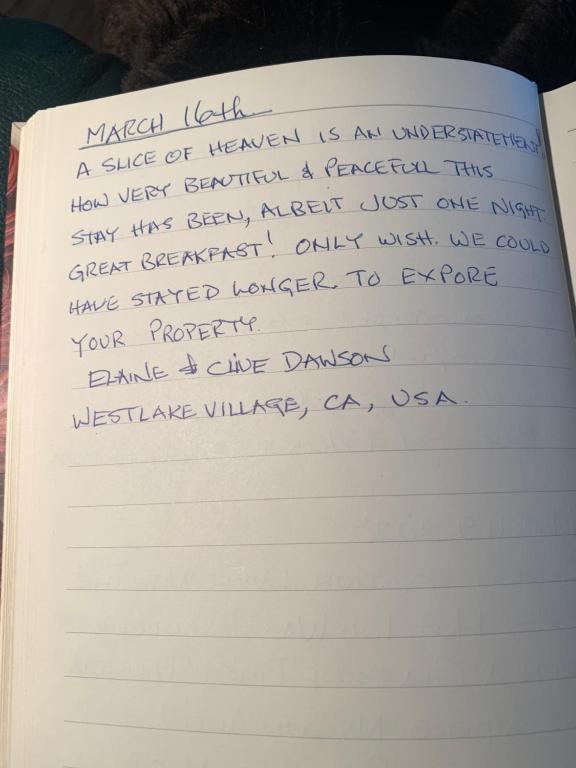 MARCH 16th
A SLICE OF HEAVEN IS AN UNDERSTATEMENT!
HOW VERY BEAUTIFUL & PEACEFULL THIS
STAY HAS BEEN, ALBEIT JUST ONE NIGHT.
GREAT BREAKFAST! ONLY WISH. WE COULD
HAVE STAYED LONGER. TO EXPORE
YOUR PROPERTY.
ELAINE & CLIVE DAWSON
WESTLAKE VILLAGE, CA, USA.